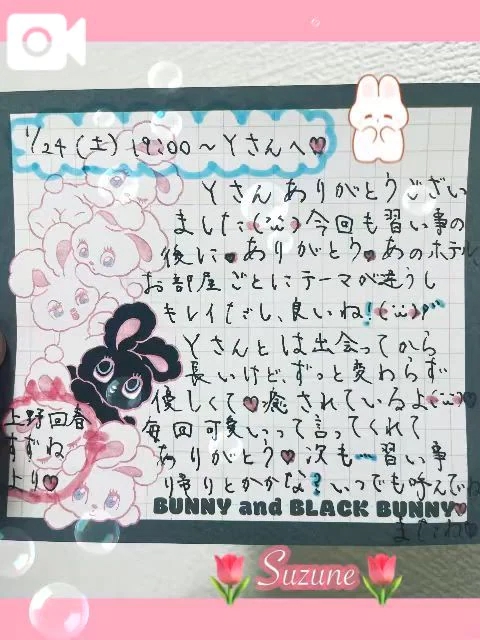 Suzune
1/24(土)19:00～Yさんへ♥
Yさんありがとうござい
ました(¨̮)今回も習い事の
後に♥ありがとう♥あのホテル
お部屋ごとにテーマが違うし
キレイだし、良いね!(¨̮)
Yさんとは出会ってから
長いけど、ずっと変わらず
優しくて♥癒されているよ(¨̮)♡
毎回可愛いって言ってくれて
ありがとう♥次も習い事
帰りとかかな?いつでも呼んでね
またね♡
上野回春
すずね
より♥
BUNNY and BLACK BUNNY
Suzune